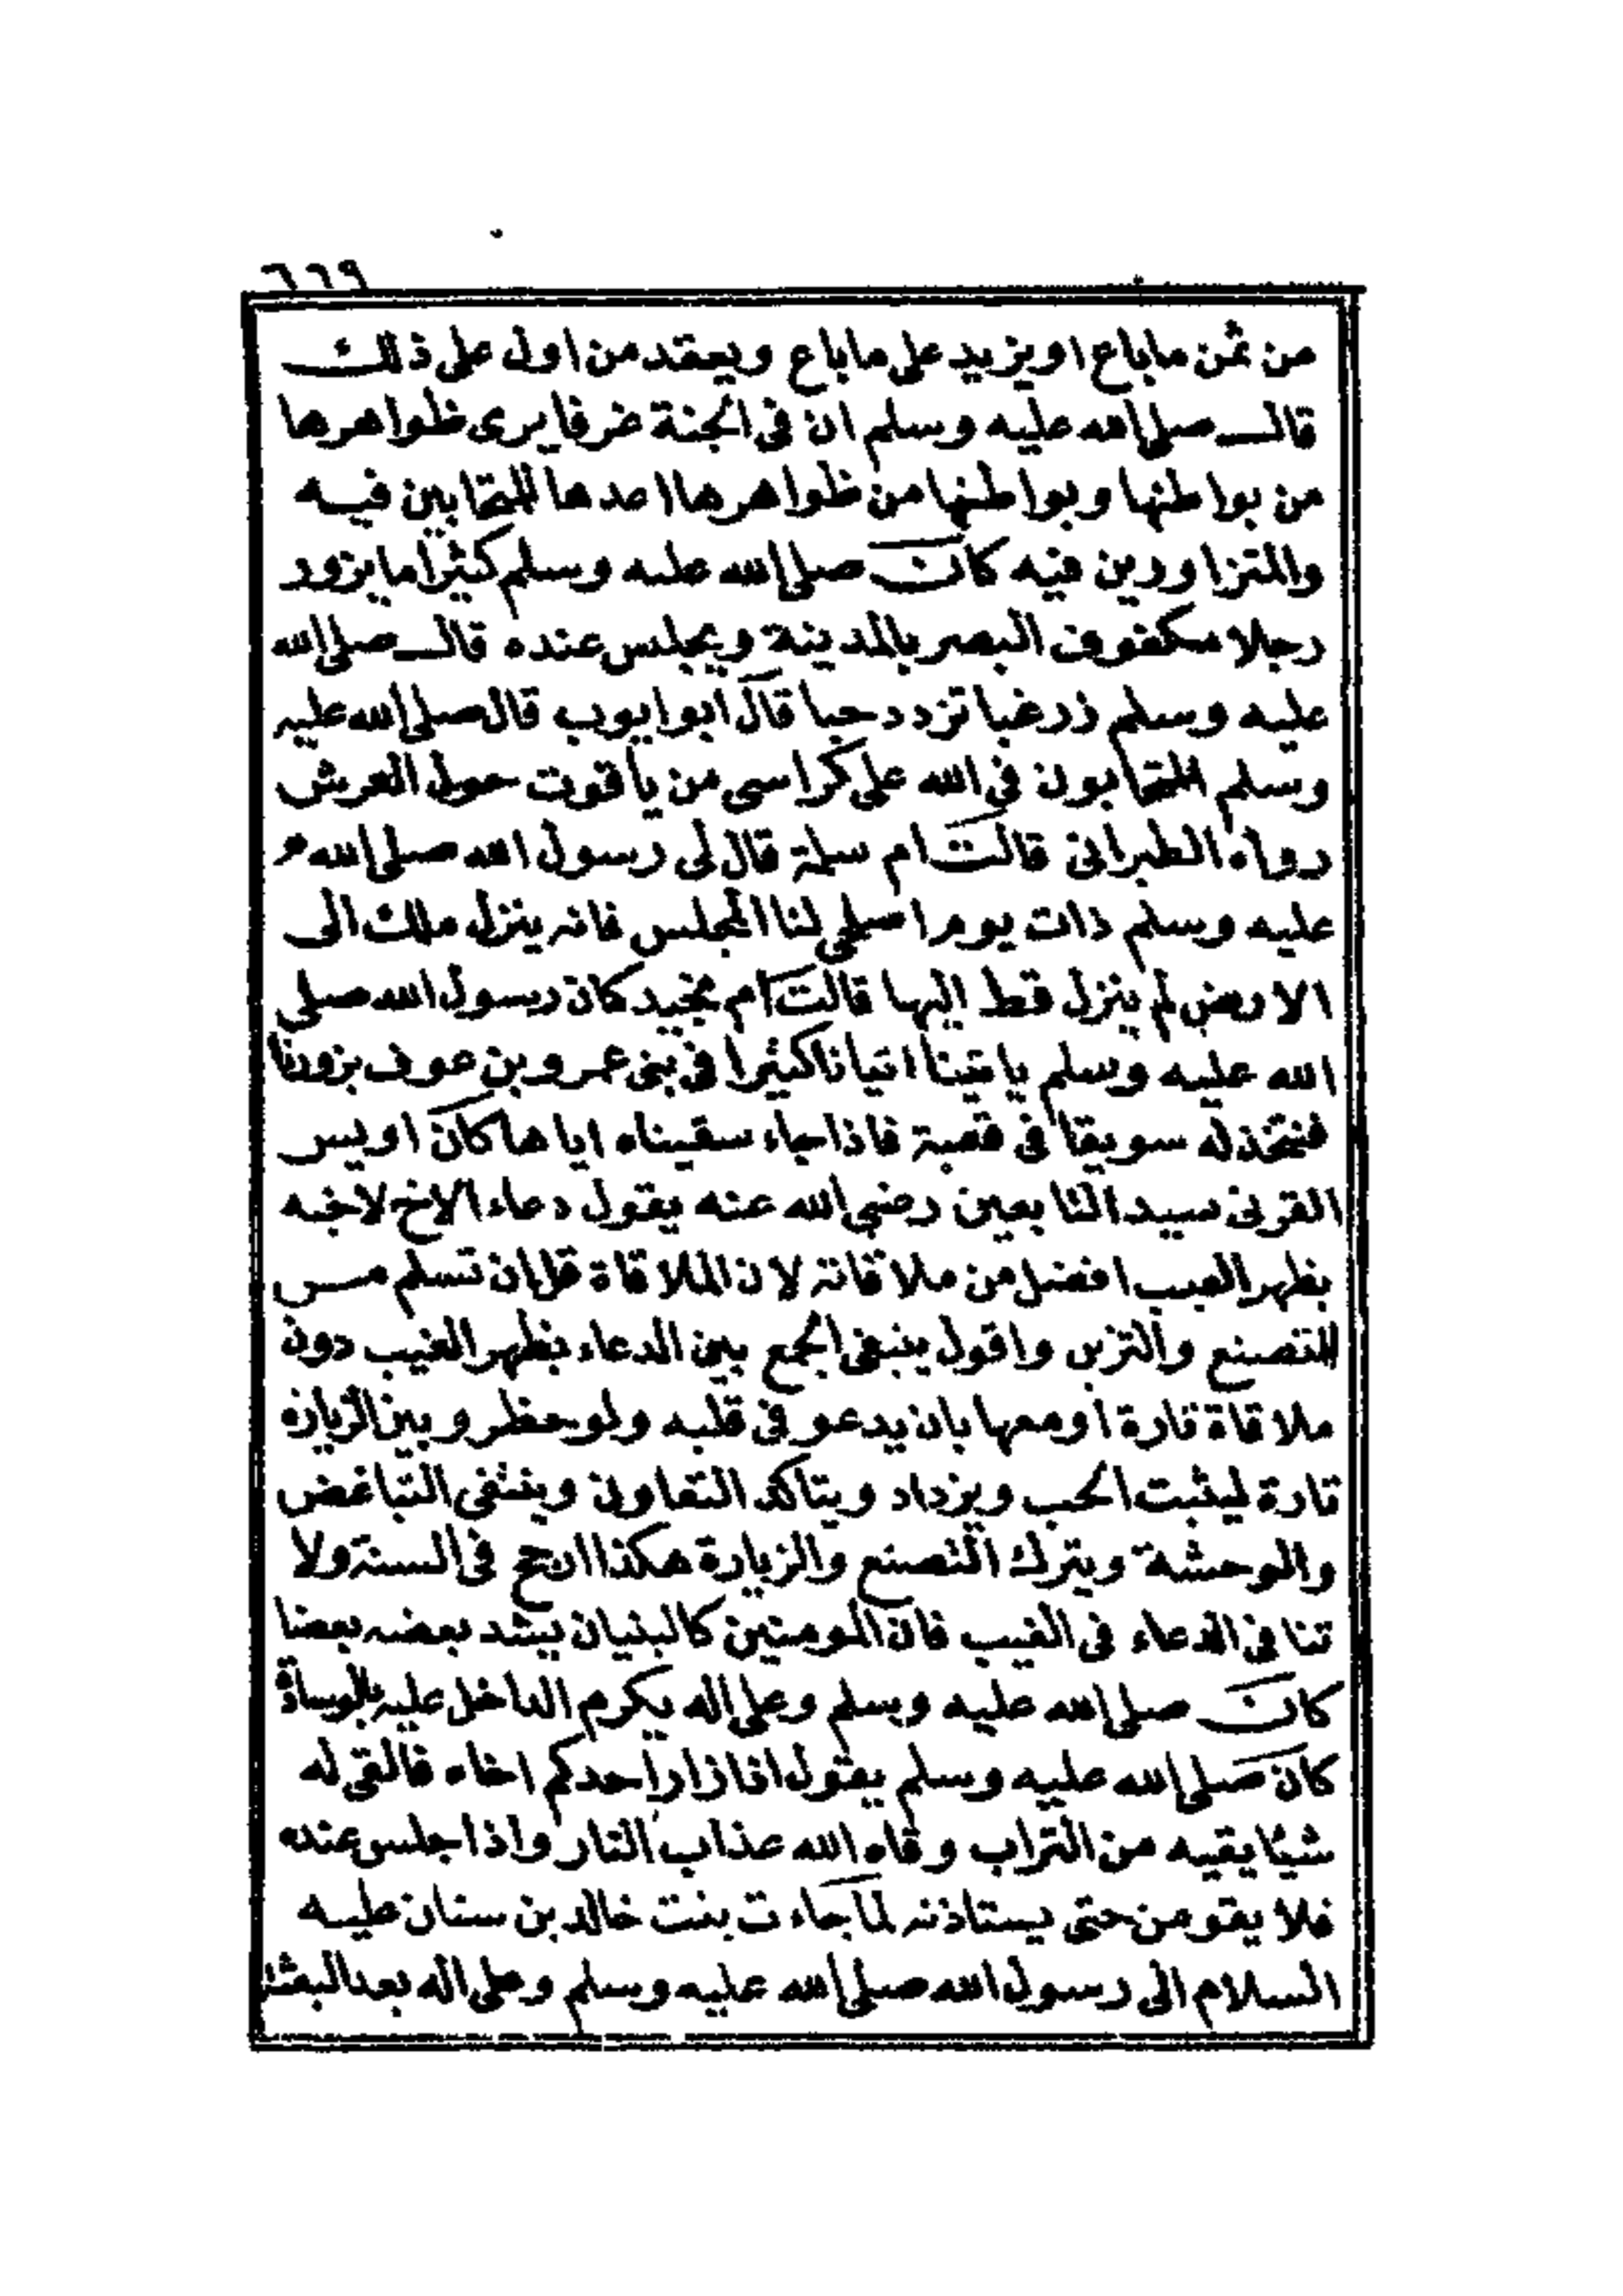 ٦٦٩
من ثمن ما باع او يزيد على ما باع ويعقد من اول على ذلك
قال صلى الله عليه وسلم ان في الجنة غرفا يرى ظواهرها
من بواطنها وبواطنها من ظواهرها اعدها للمتحابين فيه
والمتزاورين فيه كان صلى الله عليه وسلم كثيرا ما يزور
رجلا مكفوف البصر بالمدينة ويجلس عنده قال صلى الله
عليه وسلم زر غبا تزدد حبا قال ابو ايوب قال صلى الله عليه
وسلم المتحابون في الله على كراسى من ياقوت حول العرش
رواه الطبرانى قالت ام سلمة قال لى رسول الله صلى الله
عليه وسلم ذات يوم اصلحى لنا المجلس فانه ينزل ملك الى
الارض لم ينزل قط اليها قالت ام بجيد كان رسول الله صلى
الله عليه وسلم ياتينا اتيانا كثيرا في بنى عمرو بن عوف يزورنا
فنتخذ له سويقا في قعبة فاذا جاء سقيناه اياها كان اويس
القرنى سيد التابعين رضي الله عنه يقول دعاء الاخ لاخيه
بظهر الغيب افضل من ملاقاته لان الملاقاة قل ان تسلم من
التصنع والتزين واقول ينبغى الجمع بين الدعاء بظهر الغيب دون
ملاقاة تارة اومعها بان يدعو في قلبه ولو حظر وبين الزيارة
تارة ليثبت الحب ويزداد ويتاكد التعاون وينتفى التباغض
والوحشة ويترك التصنع والزيارة هكذا ارجح في السنة ولا
تنافي الدعاء في الغيب فان المومنين كالبنيان يشد بعضه بعضا
كان صلى الله عليه وسلم وعلى اله يكرم الداخل عليه بالوسادة
كان صلى الله عليه وسلم يقول اذا زار احدكم اخاه فالقى له
شيئا يقيه من التراب وقاه الله عذاب النار واذا جلس عنده
فلا يقومن حتى يستاذنه لما جاءت بنت خالد بن سنان عليه
السلام الى رسول الله صلى الله عليه وسلم وعلى اله بعد البعثة